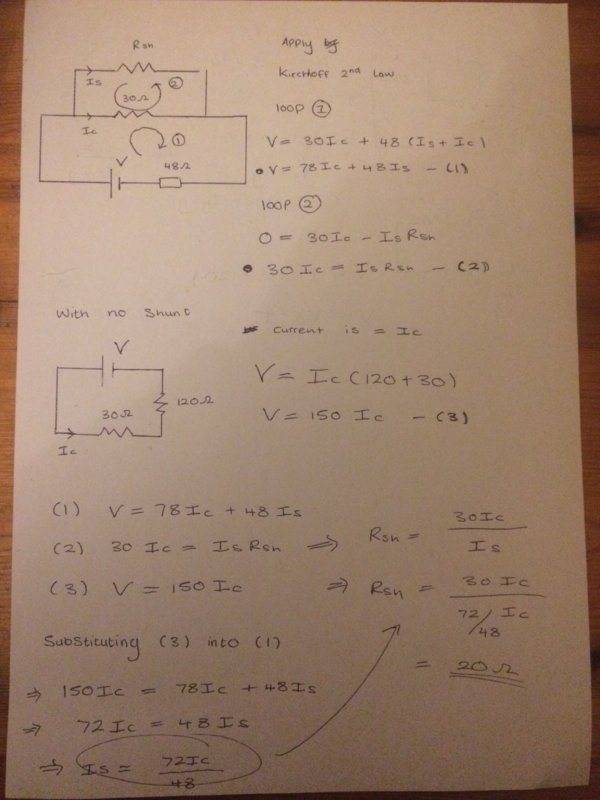 Rsh
Is
30Ω
②
Ic
①
V
48Ω
Apply
Kirchoff 2nd Law
loop ①
V = 30Ic + 48 (Is + Ic)
• V = 78Ic + 48Is - (1)
loop ②
0 = 30Ic - Is Rsh
• 30 Ic = Is Rsh - (2)
With no Shunt
V
30Ω
120Ω
Ic
Current is = Ic
V = Ic (120+30)
V = 150 Ic - (3)
(1) V = 78Ic + 48Is
(2) 30 Ic = Is Rsh ⇒ Rsh = 30Ic / Is
(3) V = 150 Ic ⇒ Rsh = 30 Ic / 72/48 Ic
= 20Ω
Substituting (3) into (1)
⇒ 150Ic = 78Ic + 48Is
⇒ 72Ic = 48 Is
⇒ Is = 72Ic / 48